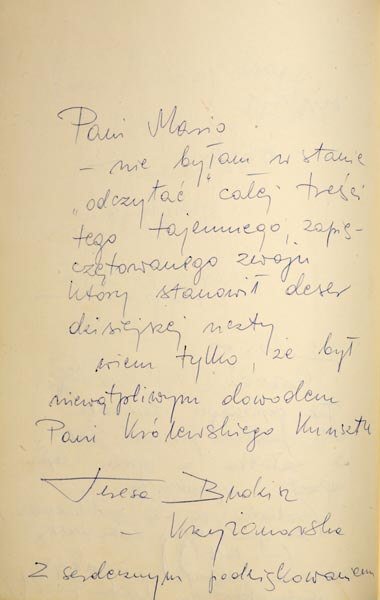 Pani Mario
– nie byłam w stanie
"odczytać" całej treści
tego tajemnego, zapie-
czętowanego zwoju
który stanowił deser
dzisiejszej uczty
wiem tylko, że był
niewątpliwym dowodem
Pani Królewskiego Kunsztu
Teresa Budzisz
– Krzyżanowska
z serdecznym podziękowaniem